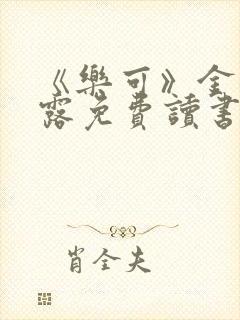 《樂可》全
露免費讀書
肖全夫